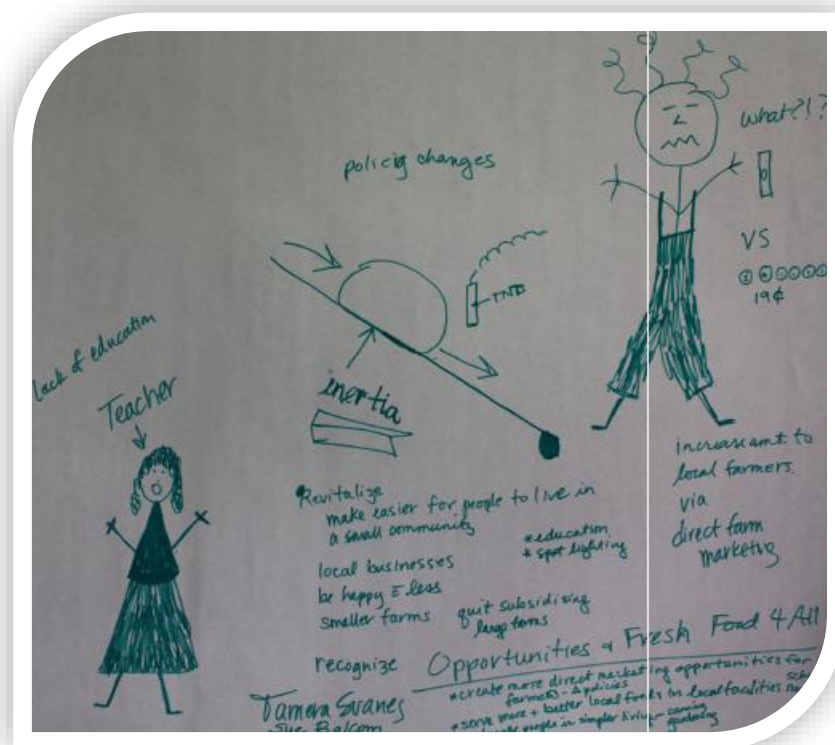 what?!?
policig changes
VS
TNT
19¢
lack of education
Teacher
inertia
increase amt. to
local farmers.
via
direct farm
marketing
Revitalize
make easier for people to live in
a small community
* education
* spot lighting
local businesses
be happy c̄ less
smaller farms
quit subsidising
large farms
recognize
Opportunities & Fresh Food 4 All
* create more direct marketing opportunities for
farmers - Δ policies
* serve more + better local foods in local facilities
people in simpler living - canning
gardening
Tamera
Sue Balcom